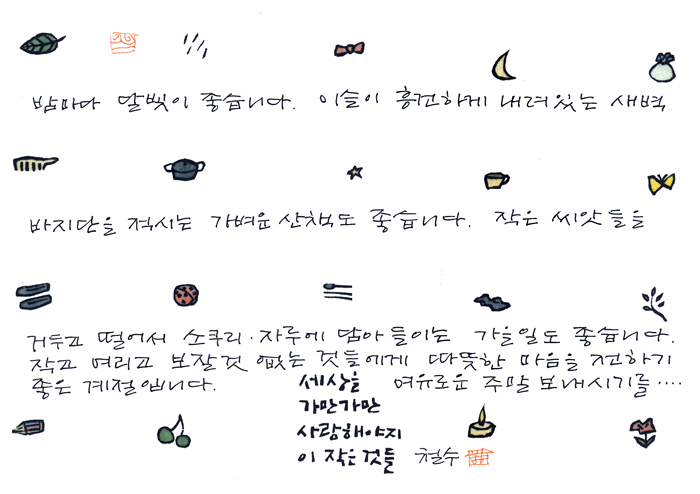 밤마다 달빛이 좋습니다. 이슬이 흥건하게 내려있는 새벽
바지단을 적시는 가벼운 산책도 좋습니다. 작은 씨앗들을
거두고 떨어서 소쿠리·자루에 담아 들이는 가을일도 좋습니다.
작고 여리고 보잘것 없는 것들에게 따뜻한 마음을 전하기
좋은 계절입니다. 여유로운 주말 보내시기를....
세상을
가만가만
사랑해야지
이 작은 것들 철수